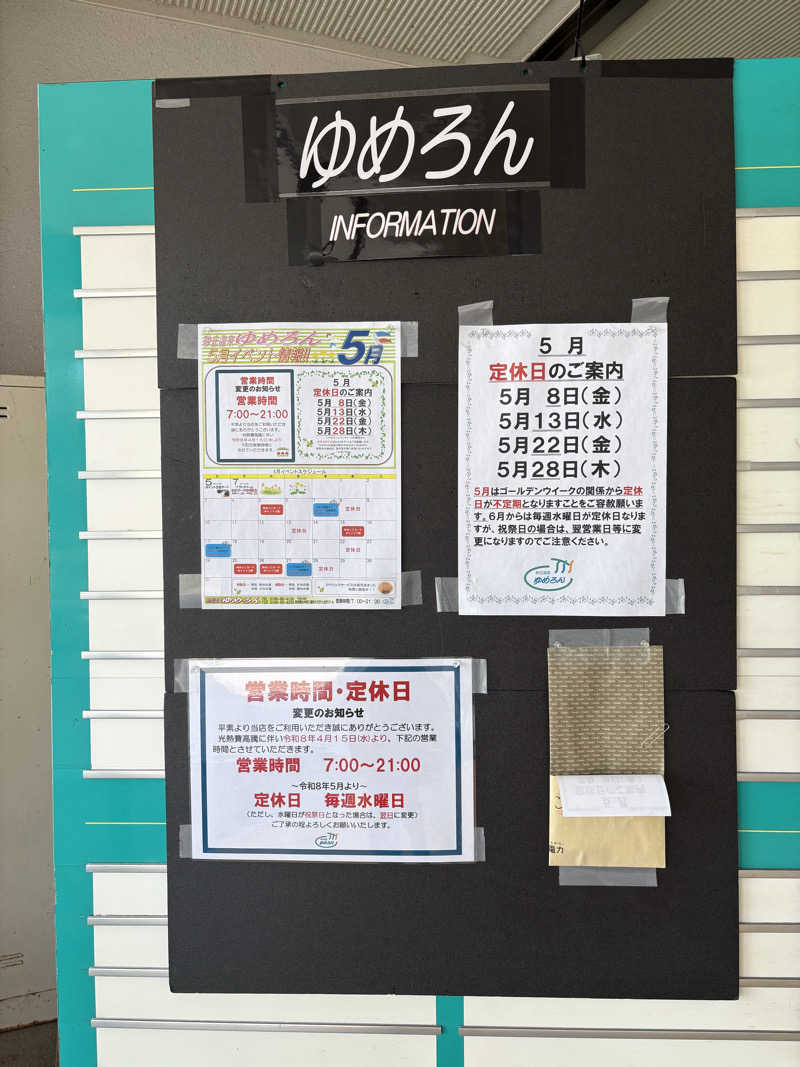 ゆめろん
INFORMATION
ゆめろん
5月イベント情報!!
5月
営業時間
変更のお知らせ
営業時間
7:00〜21:00
5月
定休日のご案内
5月 8日(金)
5月13日(水)
5月22日(金)
5月28日(木)
5月イベントスケジュール
定休日
定休日
定休日
定休日
5 月
定休日のご案内
5月 8日(金)
5月13日(水)
5月22日(金)
5月28日(木)
5月はゴールデンウイークの関係から定休
日が不定期となりますことをご容赦願いま
す。6月からは毎週水曜日が定休日なりま
すが、祝祭日の場合は、翌営業日等に変
更になりますのでご注意ください。
ゆめろん
営業時間・定休日
変更のお知らせ
平素より当店をご利用いただき誠にありがとうございます。
光熱費高騰に伴い令和8年4月15日(水)より、下記の営業
時間とさせていただきます。
営業時間 7:00〜21:00
〜令和8年5月より〜
定休日 毎週水曜日
(ただし、水曜日が祝祭日となった場合は、翌日に変更)
ご了承の程よろしくお願いいたします。
電力